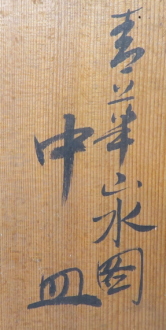 青華山水圖
中皿